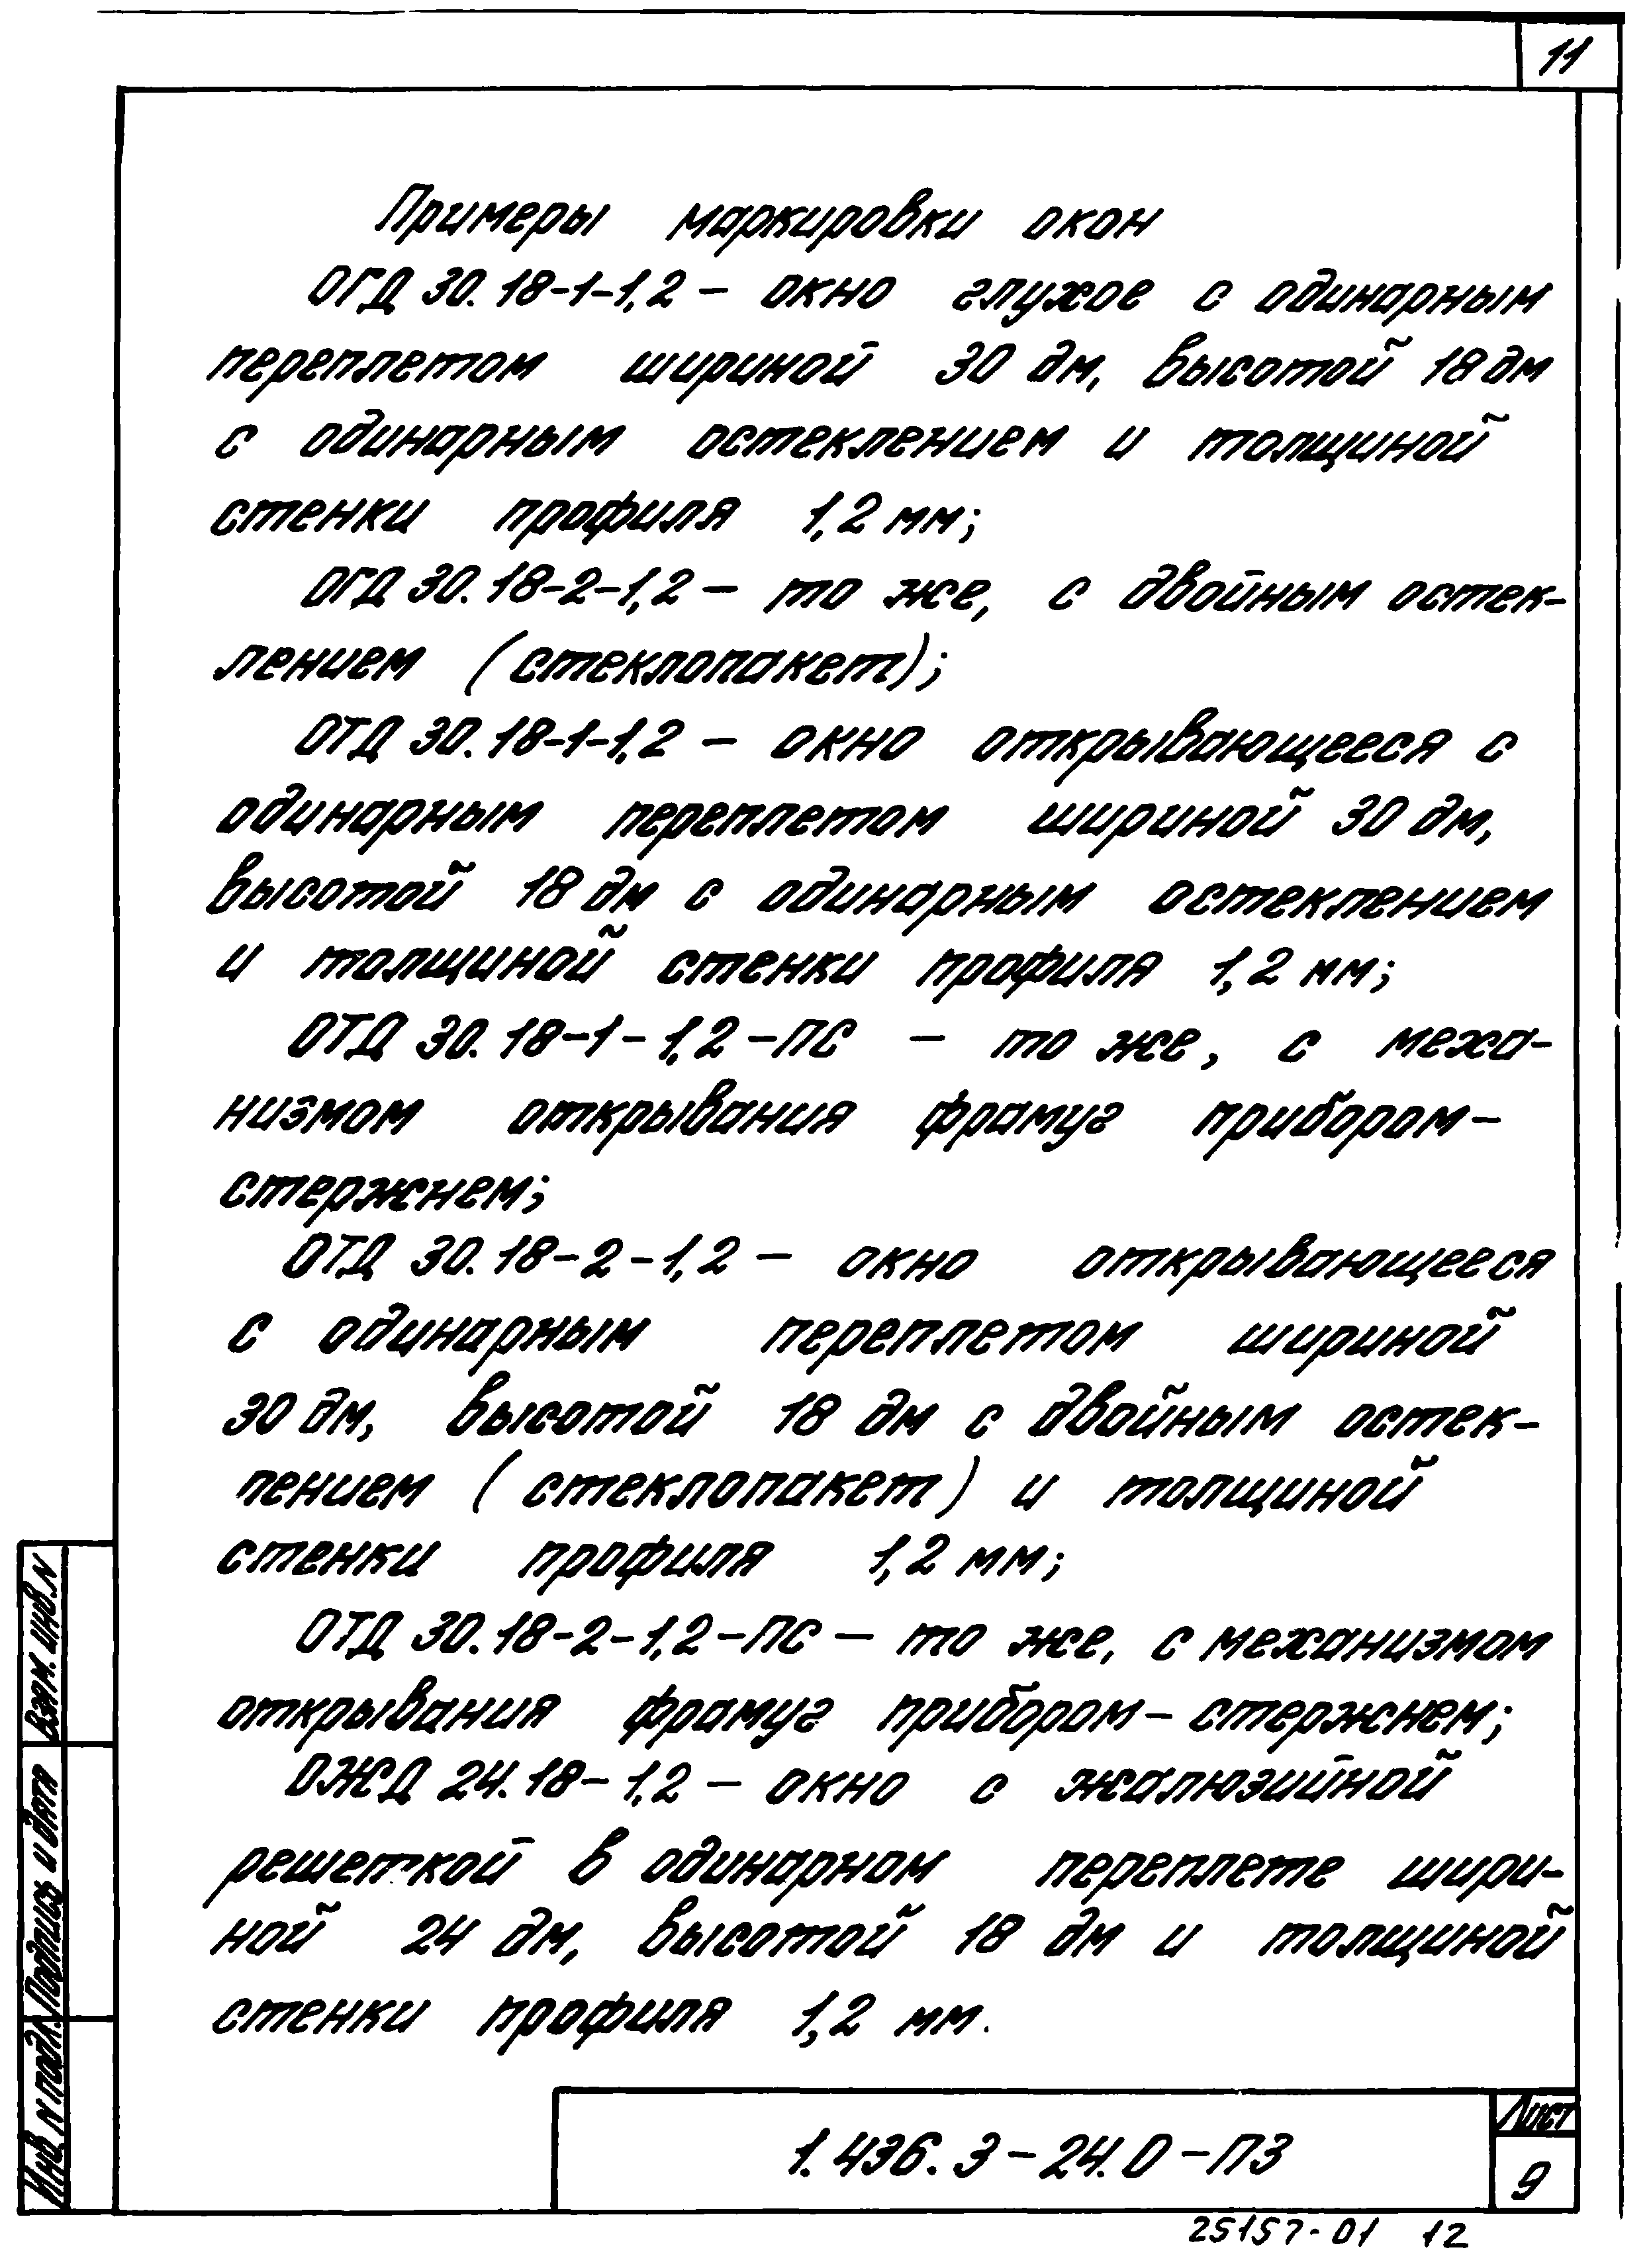 11
Примеры маркировки окон
ОГД 30.18-1-1,2 – окно глухое с одинарным
переплетом шириной 30 дм, высотой 18 дм
с одинарным остеклением и толщиной
стенки профиля 1,2 мм;
ОГД 30.18-2-1,2 – то же, с двойным остек-
лением (стеклопакет);
ОТД 30.18-1-1,2 – окно открывающееся с
одинарным переплетом шириной 30 дм,
высотой 18 дм с одинарным остеклением
и толщиной стенки профиля 1,2 мм;
ОТД 30.18-1-1,2-ПС – то же, с меха-
низмом открывания фрамуг прибором-
стержнем;
ОТД 30.18-2-1,2 – окно открывающееся
с одинарным переплетом шириной
30 дм, высотой 18 дм с двойным остек-
лением (стеклопакет) и толщиной
стенки профиля 1,2 мм;
ОТД 30.18-2-1,2-ПС – то же, с механизмом
открывания фрамуг прибором-стержнем;
ОЖД 24.18-1,2 – окно с жалюзийной
решеткой в одинарном переплете шири-
ной 24 дм, высотой 18 дм и толщиной
стенки профиля 1,2 мм.
Взам. инв. N
Подпись и дата
Инв N подл.
1.436.3-24.0-ПЗ
Лист
9
25157-01 12